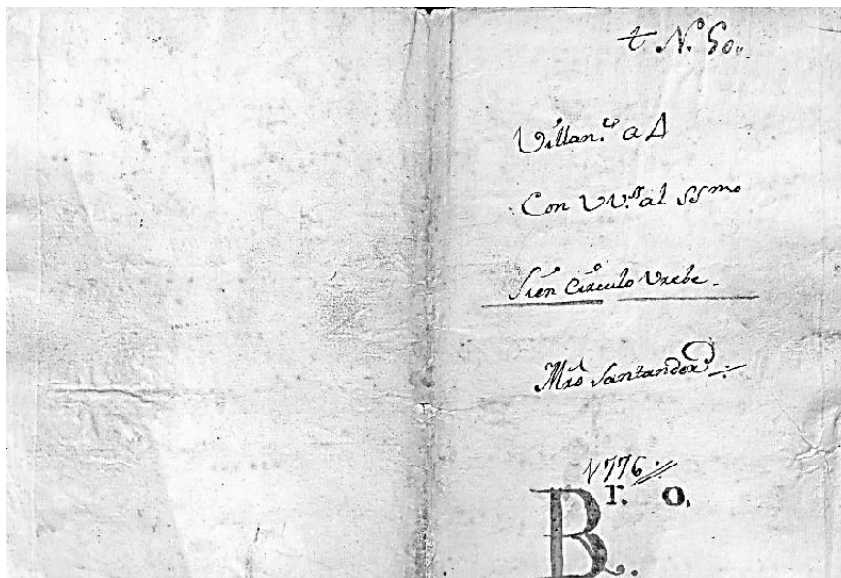 t. N.º 50.
Villan.co a 4
Con VV.s al SSmo
Si en Circulo Breve.
Mro Santander
1776
Br. o.